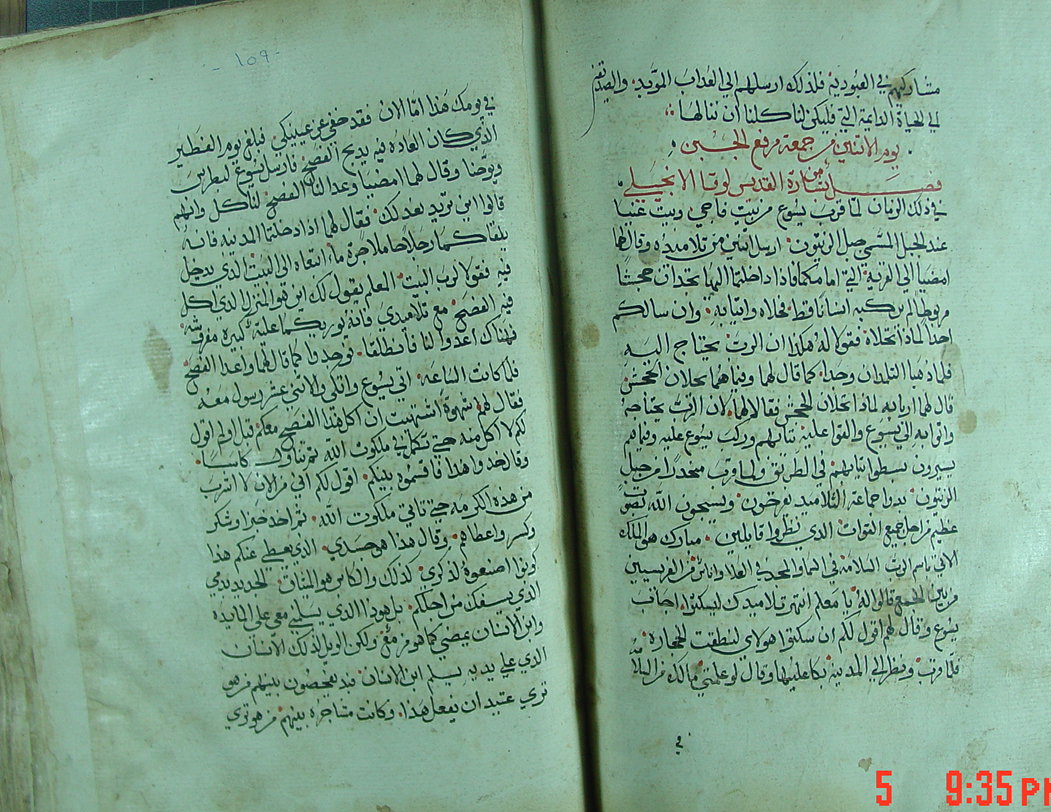 مشاركهم في العبوديه فلذلك ارسلهم الي العذاب المؤبد والصديقين
الي الحياة الدايمة التي فليكن لنا كلنا ان ننالها
يوم الاثنين من جمعة مرفع الجبن
فصل من بشارة القديس لوقا الانجيلي
في ذلك الزمان لما قرب يسوع من بيت فاجي وبيت عنيا
عند الجبل المسمي جبل الزيتون ارسل اثنين من تلاميذه وقال لهما
امضيا الي القرية التي امامكما فاذا دخلتما اليها تجدان جحشا
مربوطا لم يركبه انسانا قط فحلاه واتيا به وان سالكم
احدا لماذا تحلاه فقولا له هكذا ان الرب يحتاج اليه
فلما ذهبا التلميذان وجدا كما قال لهما وفيما هما يحلان الجحش
قال لهما اربابه لماذا تحلان الجحش فقالا لهم لان الرب يحتاجه
واتوا به الي يسوع والقوا عليه ثيابهم وركب يسوع عليه وفيما هم
يسيرون بسطوا ثيابهم في الطريق ولما قرب منحدرا من جبل
الزيتون بدوا جماعة التلاميذ يفرحون ويسبحون الله بصوت
عظيم من اجل جميع القوات الذي نظروا قايلين مبارك هو الملك
الاتي باسم الرب السلامة في السما والمجد في العلا واناس من الفريسيين
من بين الجمع قالوا له يا معلم انتهر تلاميذك ليسكتوا اجاب
يسوع وقال لهم اقول لكم ان سكتوا هولاي لنطقت الحجارة
فلما قرب ونظر الي المدينه بكا عليها وقال لو علمتي مالك من السلا
في
١٥٩
في يومك هذا اما الان فقد خفي عن عينيكي فبلغ يوم الفطير
الذي كان العاده فيه يذبح الفصح فارسل يسوع لبطرس
ويوحنا وقال لهما امضيا وعدا لنا الفصح لناكل وانهم
قالوا اين تريد نعد لك فقال لهما اذا دخلتما المدينه فانه
يلقاكما رجلا حاملا جرة ماء اتبعاه الي البيت الذي يدخل
فيه فقولا لرب البيت المعلم يقول لك اين هو المنزل الذي اكل
فيه الفصح مع تلاميذي فانه يوريكما علية كبيرة مفروشه
فهناك اعدوا لنا فانطلقا فوجدوا كما قال لهما واعدا الفصح
فلما كانت الساعه اتي يسوع واتكي والاثني عشر رسول معه
فقال لهم شهوة اشتهيت ان اكل هذا الفصح معكم قبل المي اقول
لكم لا اكل منه حتي تكمل في ملكوت الله ثم تناول كاسا
وقال خدوا هذا فاقسموه بينكم اقول لكم اني من الان لا اشرب
من هذه الكرمه حتي تاتي ملكوت الله ثم اخد خبزا وشكر
وكسر واعطاهم وقال هذا هو جسدي الذي يعطي عنكم هذا
كونوا اصنعوه لذكري كذلك والكاس هو الميثاق الجديد بدمي
الذي يسفك من اجلكم بل هوذا الذي يسلمني معي علي المايده
وابن الانسان يمضي كما هو مزمع ولكن الويل لذلك الانسان
الذي علي يديه يسلم ابن الانسان فبدوا يفحصون بينهم من هو
تري عتيد ان يفعل هذا وكانت مشاجره بينهم من هو تري
5 9:35 PM